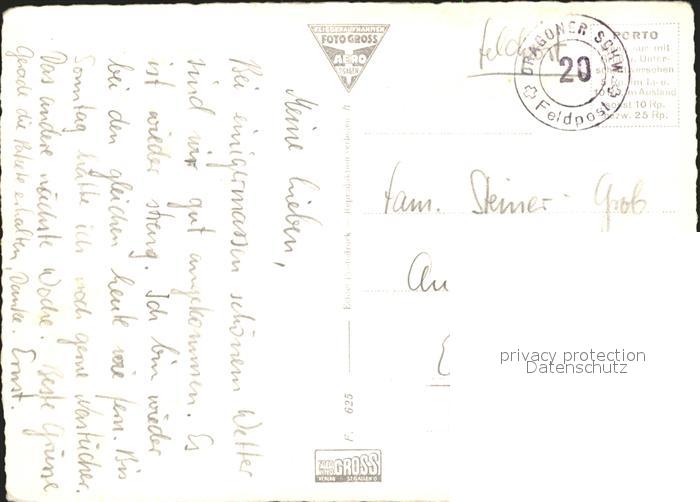 Meine Lieben,
Bei einigermassen schönem Wetter
sind wir gut angekommen. Es
ist wieder streng. Ich bin wieder
bei den gleichen heute wie fern. Bis
Sonntag hätte ich noch gerne Nastücher.
Das andere nächste Woche. Beste Grüsse
Gerade die Pakete erhalten, Danke. Ernst.
FOTO GROSS
AERO
ST. GALLEN
Echte Photodruck
Reproduktion verboten
F. 625
FOTO GROSS
VERLAG ST. GALLEN
Feldpost
DRAGONER SCHW.
20
Feldpost
PORTO
nur mit
Unter-
10 Rp.
bzw. 25 Rp.
Fam. Steiner-Grob
Au
privacy protection
Datenschutz